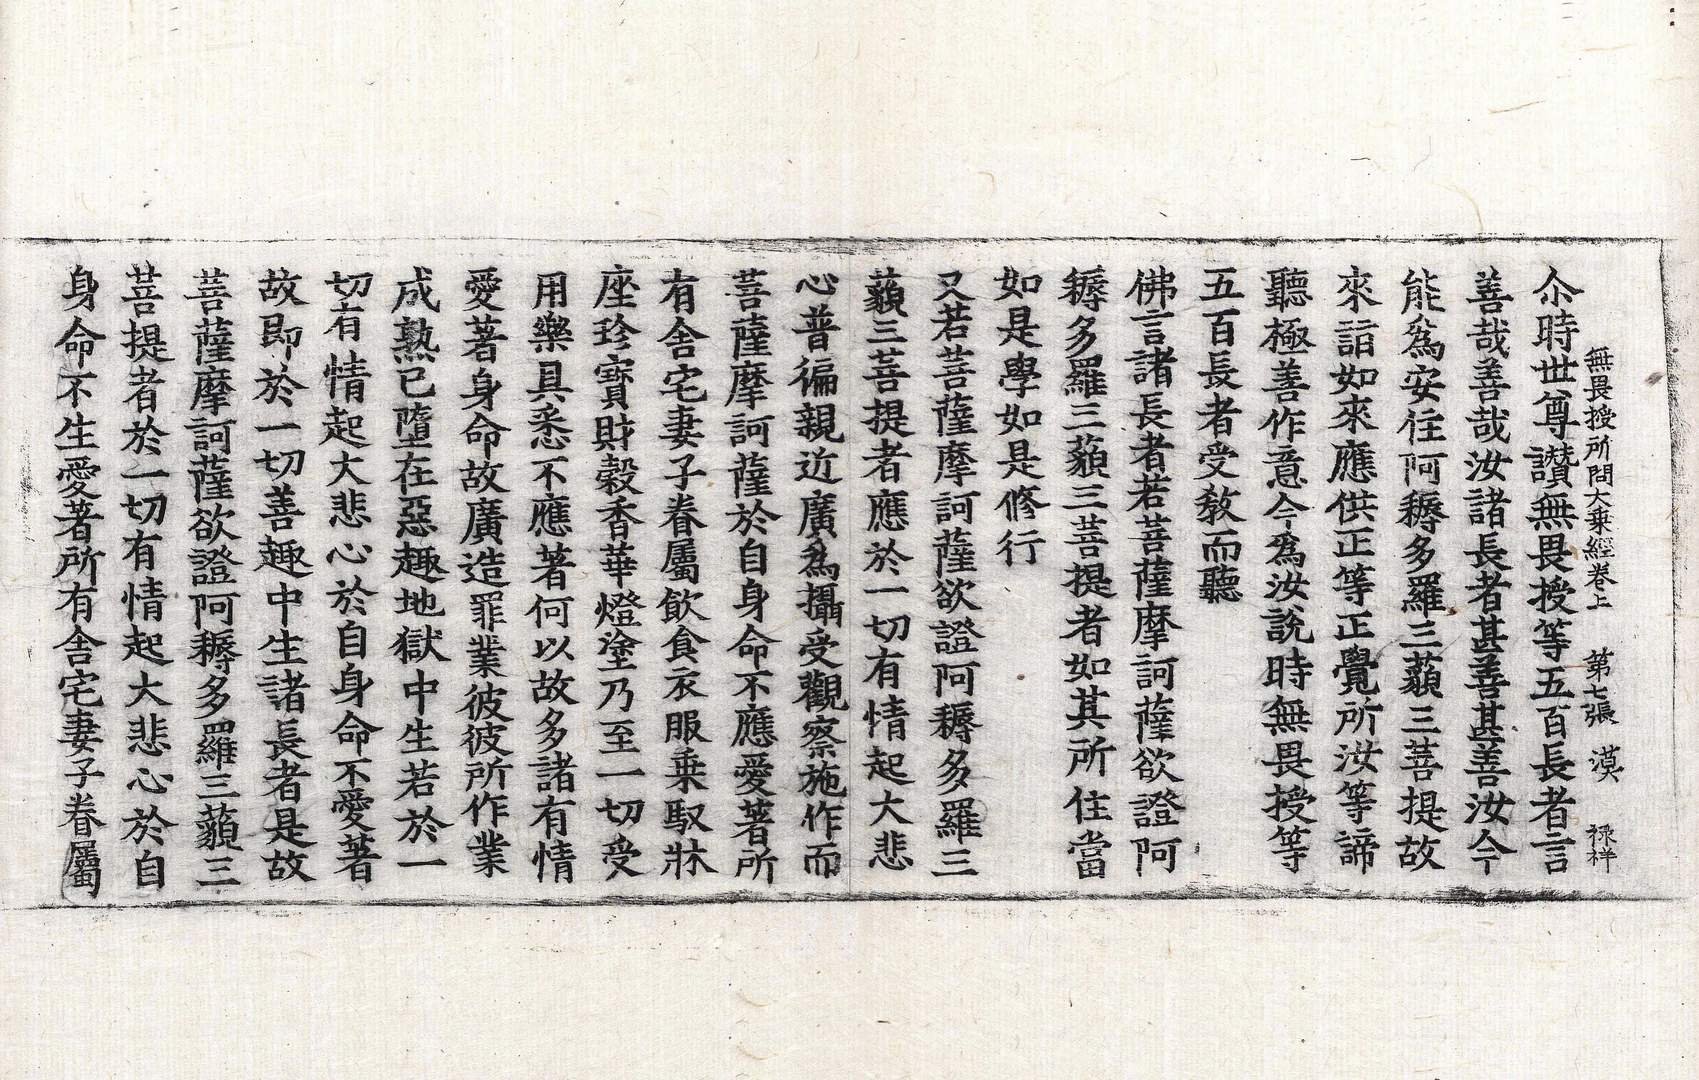 無畏授所問大乘經卷上　第七張　漠　禄祥
尒時世尊讃無畏授等五百長者言
善哉善哉汝諸長者甚善甚善汝今
能爲安住阿耨多羅三藐三菩提故
來詣如來應供正等正覺所汝等諦
聽極善作意今爲汝說時無畏授等
五百長者受教而聽
佛言諸長者若菩薩摩訶薩欲證阿
耨多羅三藐三菩提者如其所住當
如是學如是修行
又若菩薩摩訶薩欲證阿耨多羅三
藐三菩提者應於一切有情起大悲
心普徧親近廣爲攝受觀察施作而
菩薩摩訶薩於自身命不應愛著所
有舍宅妻子眷屬飮食衣服乗馭牀
座珍寶財穀香華燈塗乃至一切受
用樂具悉不應著何以故多諸有情
愛著身命故廣造罪業彼彼所作業
成熟已墮在惡趣地獄中生若於一
切有情起大悲心於自身命不愛著
故即於一切善趣中生諸長者是故
菩薩摩訶薩欲證阿耨多羅三藐三
菩提者於一切有情起大悲心於自
身命不生愛著所有舍宅妻子眷屬